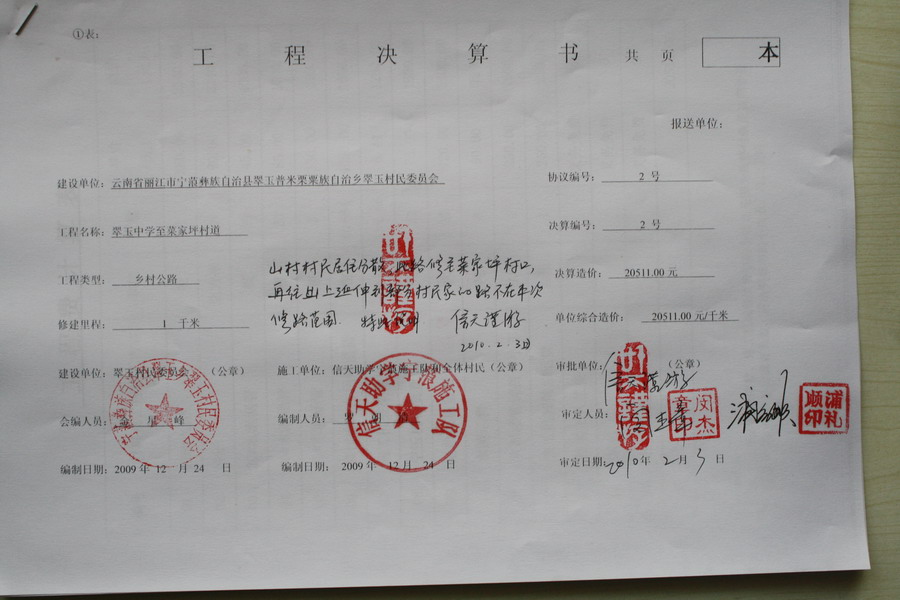 ①表：
工程决算书 共 页 本
报送单位：
建设单位：云南省丽江市宁蒗彝族自治县翠玉普米栗粟族自治乡翠玉村民委员会 协议编号： 2 号
工程名称：翠玉中学至菜家坪村道 决算编号： 2 号
工程类型： 乡村公路 决算造价： 20511.00 元
山村村民居住分散，此路修至菜家坪村口，
再往山上延伸到 村民家的路不在本次
修路范围. 特此说明 信天谨游
2010.2.3日
修建里程： 1 千米 单位综合造价： 20511.00 元/千米
建设单位：翠玉村民委员会 （公章） 施工单位：信天助学宁蒗施工队和全体村民（公章） 审批单位： 信天谨游 （公章）
会编人员： 峰 编制人员： 审定人员：
编制日期：2009 年 12 月 24 日 编制日期： 2009 年 12 月 24 日 审定日期：2010 年 2 月 3 日
信天助学宁蒗施工队
闵杰章印
浦礼顺印